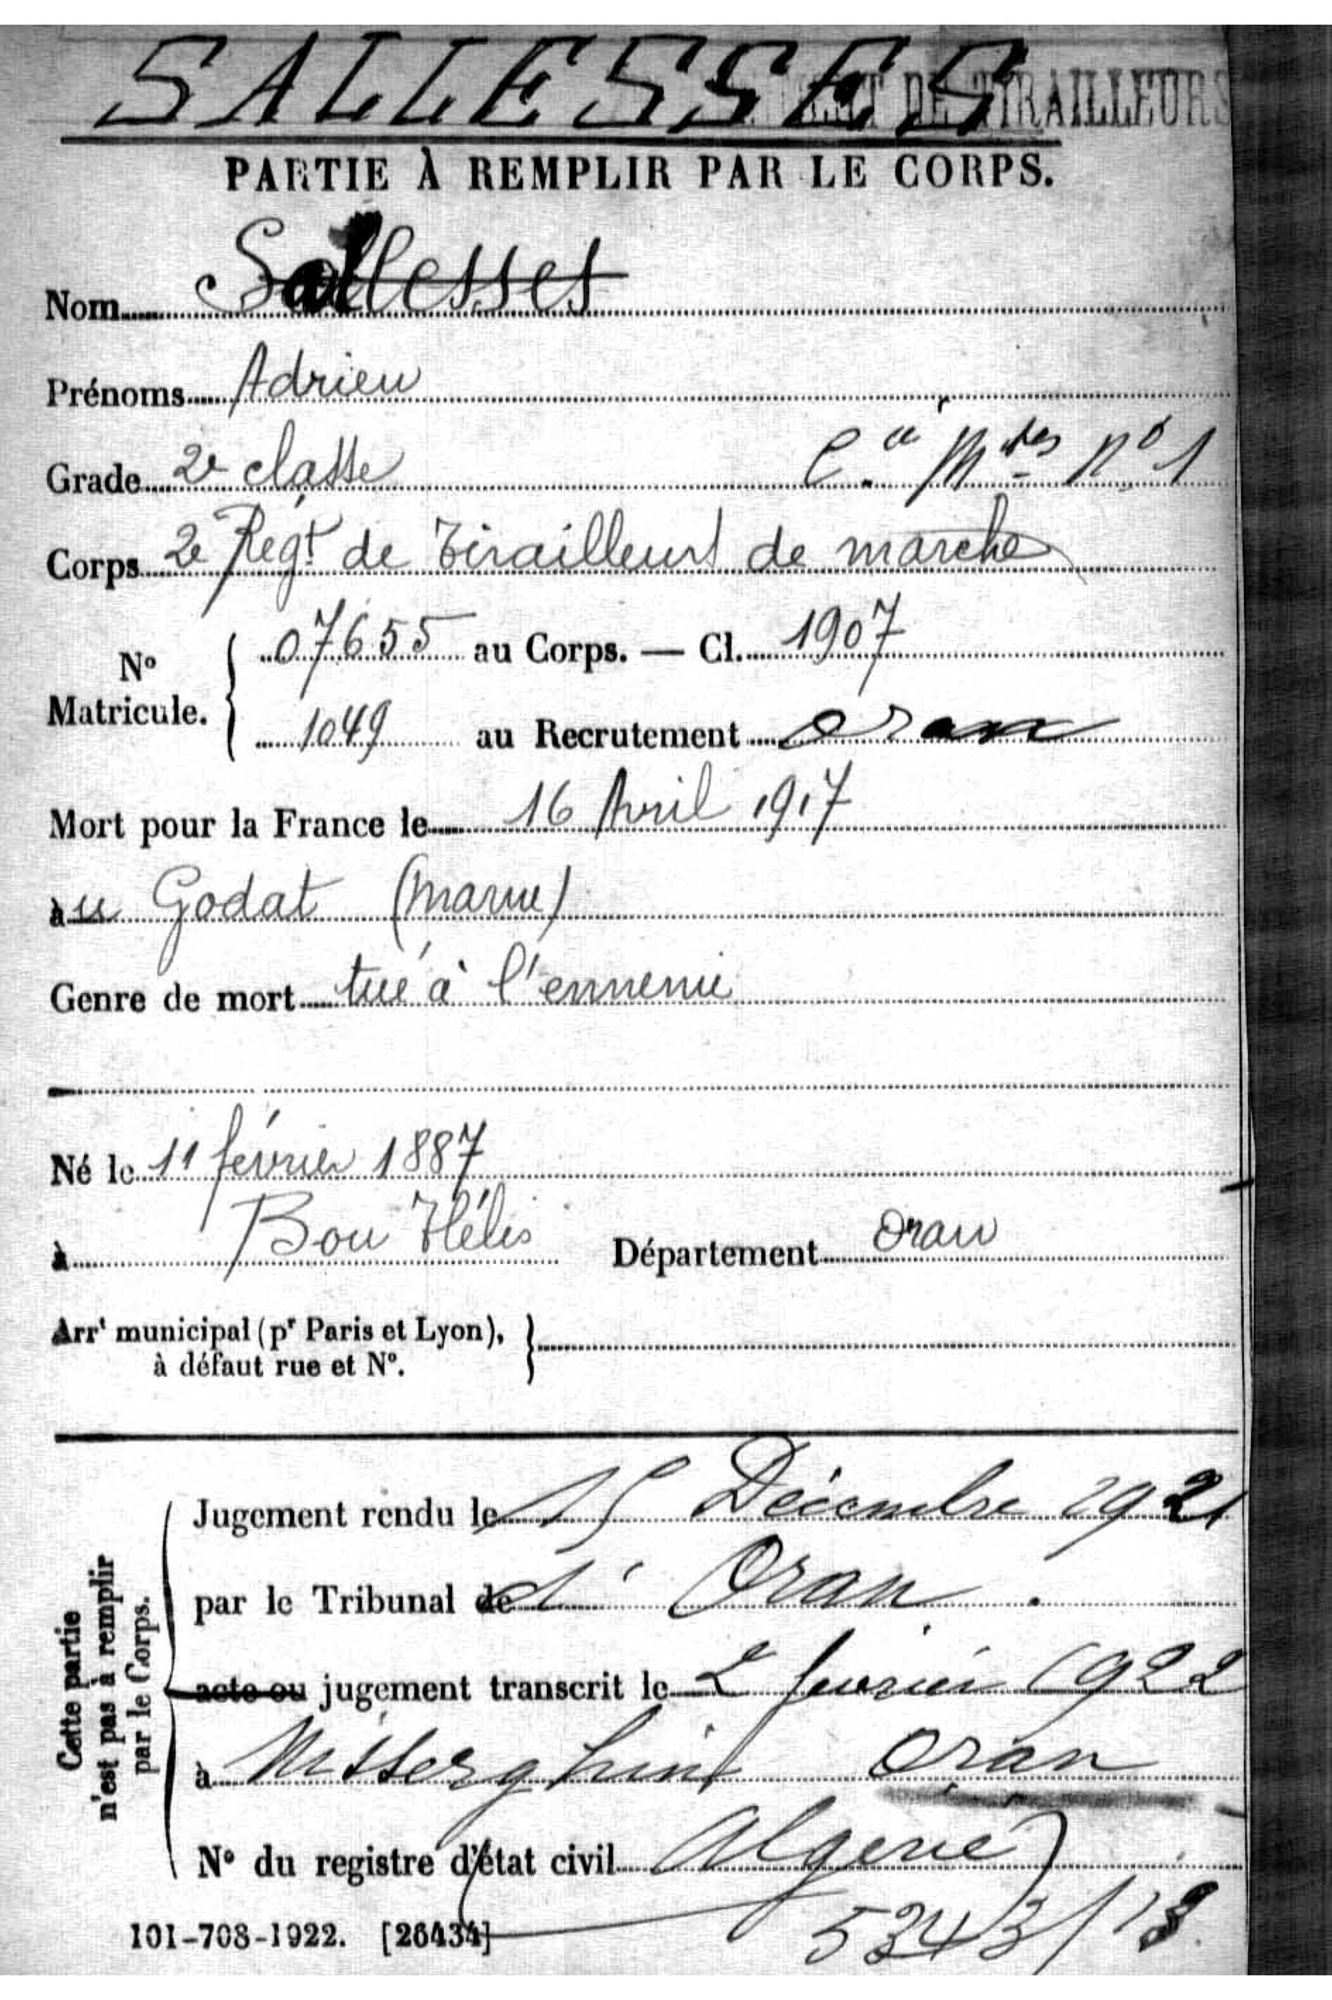 SALLESSES
DE TIRAILLEURS
PARTIE À REMPLIR PAR LE CORPS.
Nom Sallesses
Prénoms Adrien
Grade 2e classe Cie Mses No 1
Corps 2e Regt de Tirailleurs de marche
No Matricule. { 07655 au Corps. — Cl. 1907
1049 au Recrutement Oran
Mort pour la France le 16 Avril 1917
àu Godat (Marne)
Genre de mort tué à l'ennemi
Né le 11 février 1887
à Bou Tlélis Département Oran
Arrt municipal (pr Paris et Lyon), }
à défaut rue et No.
Cette partie
n'est pas à remplir
par le Corps.
Jugement rendu le 15 Décembre 1921
par le Tribunal de d' Oran.
acte ou jugement transcrit le 2 février 1922
à Misserghin Oran
No du registre d'état civil Algérie)
5343/18
101-708-1922. [26434]